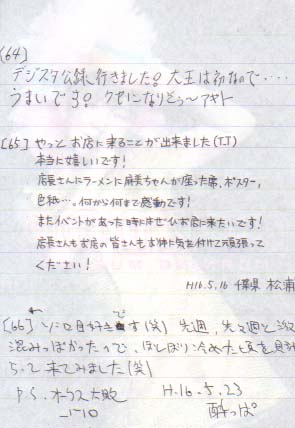 (64)
デジスタ公録、行きました!大王は初なので・・・・
うまいです!クセになりそう〜アキト
[65] やっとお店に来ることが出来ました(T.T)
本当に嬉しいです!
店長さんにラーメンに麻美ちゃんが座った席、ポスター、
色紙…。何から何まで感動です!
またイベントがあった時にはぜひお店に来たいです!
店長さんもお店の皆さんもお体に気を付けて頑張って
ください!
H16.5.16 千葉県 松浦
[66] 好きです(笑) 先週、先々週と
混みっぽかったので、ほとぼり冷めた頃を見計
らって来てみました(笑)
P.S. オークス大敗 H.16.5.23
酔っぱ